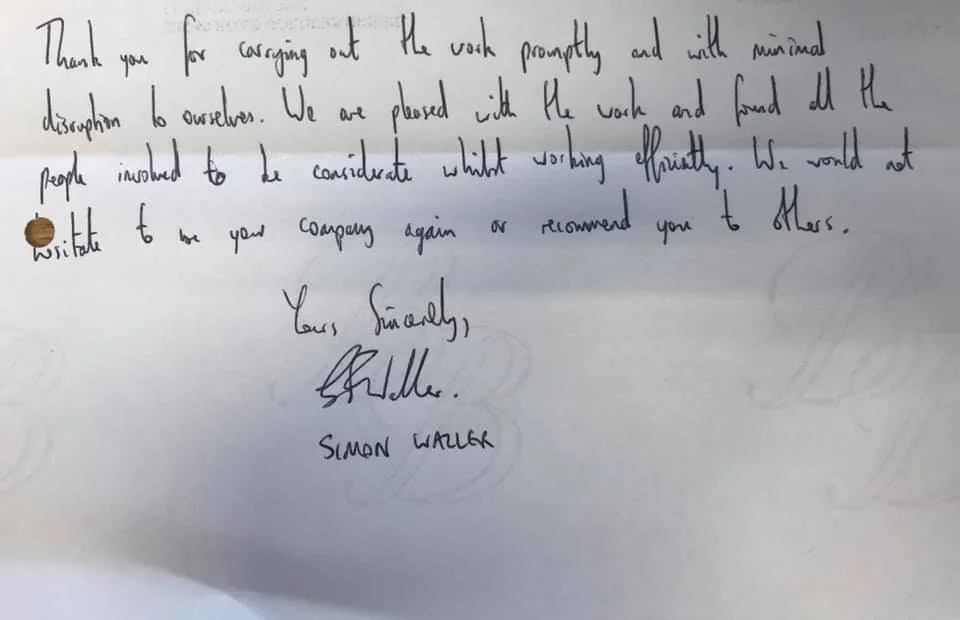 Thank you for carrying out the work promptly and with minimal
disruption to ourselves. We are pleased with the work and found all the
people involved to be considerate whilst working efficiently. We would not
hesitate to use your company again or recommend you to others.
Yours Sincerely,
SFWaller.
SIMON WALLER